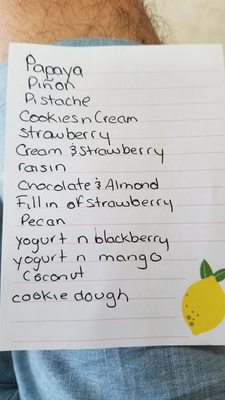 Papaya
Piñon
Pistache
Cookies n Cream
Strawberry
Cream & Strawberry
raisin
Chocolate & Almond
Fill in of Strawberry
Pecan
yogurt n blackberry
yogurt n mango
Coconut
cookie dough